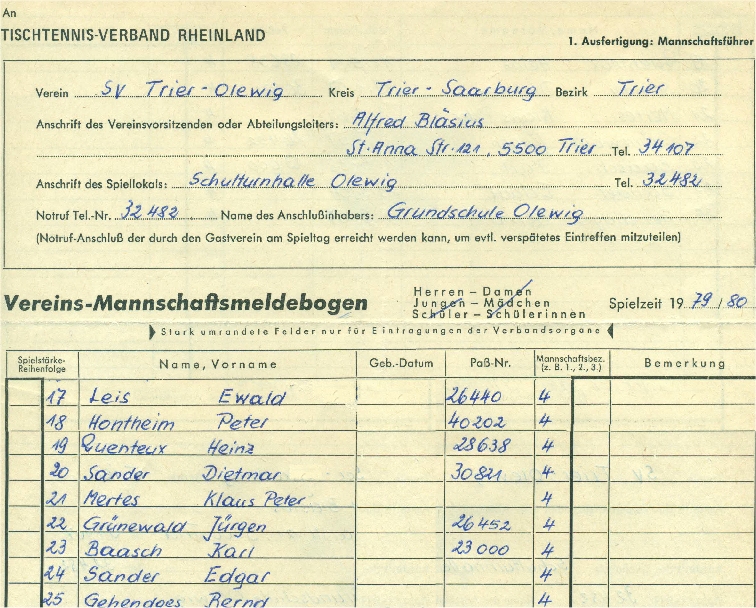 An
TISCHTENNIS-VERBAND RHEINLAND
1. Ausfertigung: Mannschaftsführer
Verein SV Trier-Olewig Kreis Trier-Saarburg Bezirk Trier
Anschrift des Vereinsvorsitzenden oder Abteilungsleiters: Alfred Bläsius
St. Anna Str. 121, 5500 Trier Tel. 34107
Anschrift des Spiellokals: Schulturnhalle Olewig Tel. 32482
Notruf Tel.-Nr. 32482 Name des Anschlußinhabers: Grundschule Olewig
(Notruf-Anschluß der durch den Gastverein am Spieltag erreicht werden kann, um evtl. verspätetes Eintreffen mitzuteilen)
Herren – Damen
Vereins-Mannschaftsmeldebogen Jungen – Mädchen Spielzeit 19 79 / 80
Schüler – Schülerinnen
Stark umrandete Felder nur für Eintragungen der Verbandsorgane
Spielstärke-Reihenfolge Name, Vorname Geb.-Datum Paß-Nr. Mannschaftsbez. (z. B. 1., 2., 3.) Bemerkung
17 Leis Ewald 26440 4
18 Hontheim Peter 40202 4
19 Quenteux Heinz 28638 4
20 Sander Dietmar 30821 4
21 Mertes Klaus Peter 4
22 Grünewald Jürgen 26452 4
23 Baasch Karl 23000 4
24 Sander Edgar 4
25 Gehendges Bernd 4